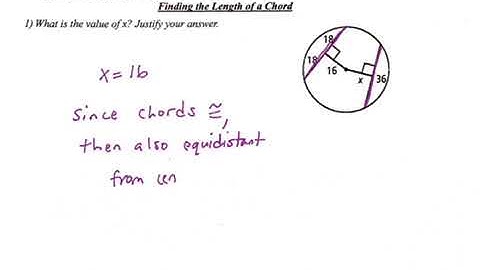 Finding the Length of a Chord
1) What is the value of x? Justify your answer.
18
18
16
x
36
x = 16
since chords ≅,
then also equidistant
from cen